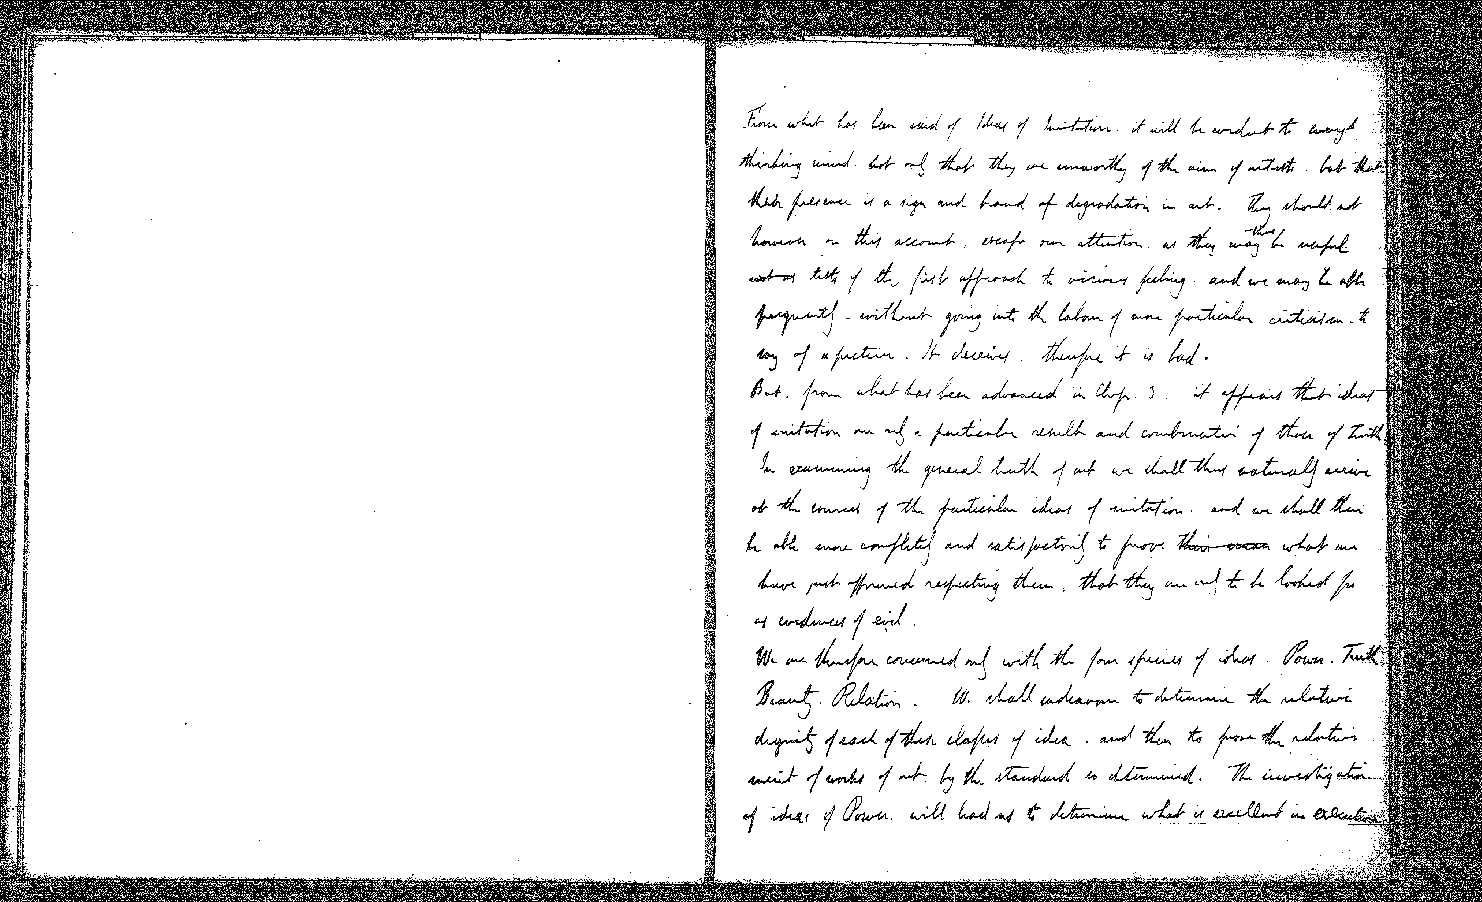 From what has been said of Ideas of Imitation. it will be evident to every
thinking mind. not only that they are unworthy of the aim of artists. but that
their presence is a sign and brand of degradation in art. They should not
however on this account. escape our attention. as they may thus be useful
as tests of the first approach to vicious feeling. and we may be able
frequently - without going into the labour of more particular criticism. to
say of a picture. It deceives. therefore it is bad.
But. from what has been advanced in Chap. 3. it appears that ideas
of imitation are only a particular result and combination of those of truth.
In examining the general truth of art we shall thus naturally arrive
at the sources of the particular ideas of imitation. and we shall then
be able more completely and satisfactorily to prove what we
have just affirmed respecting them. that they are only to be looked for
as evidences of evil.
We are therefore concerned only with the four species of ideas. Power. Truth
Beauty. Relation. We shall endeavour to determine the relative
dignity of each of these classes of idea. and then to prove the relative
merit of works of art. by the standard so determined. The investigation
of ideas of Power. will lead us to determine what is excellent in execution